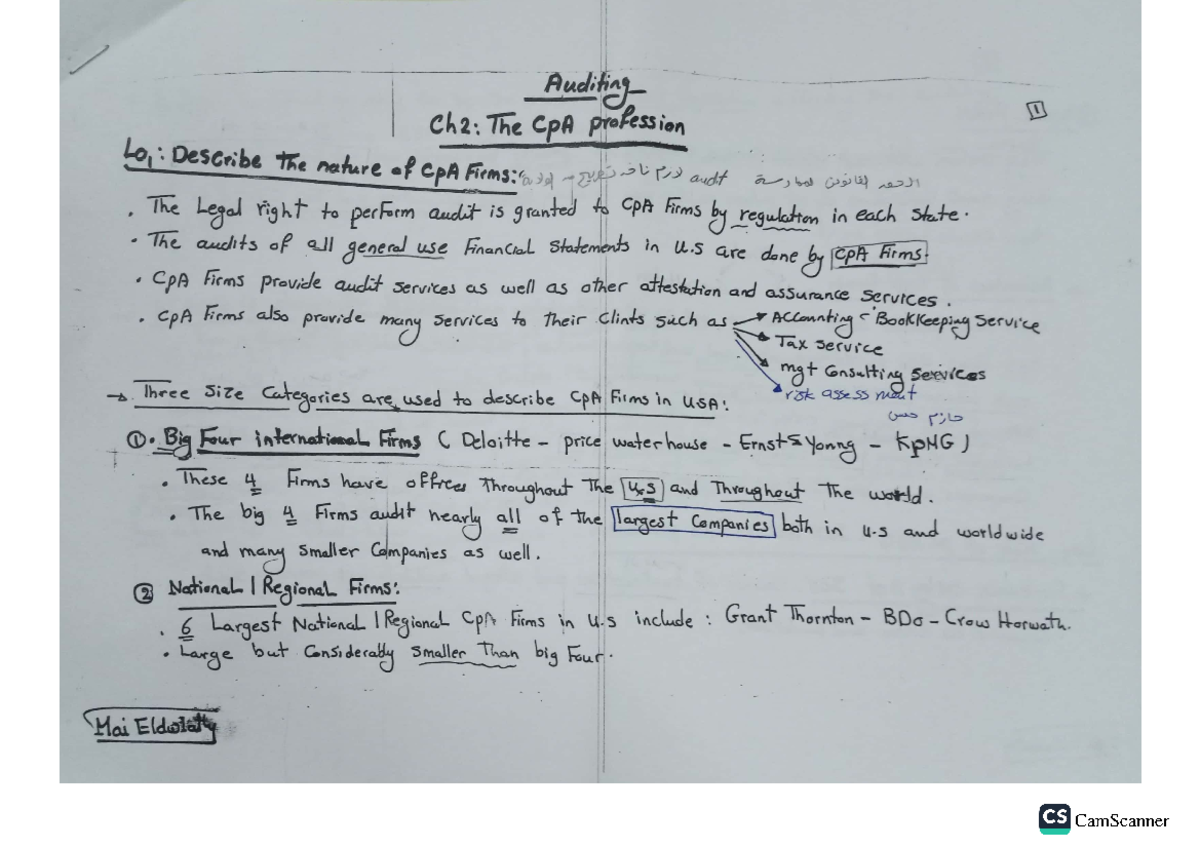 Auditing
1
Ch2: The CpA profession
Lo1: Describe The nature of CpA Firms:
audt
. The Legal right to perform audit is granted to CpA Firms by regulation in each state.
. The audits of all general use Financial Statements in U.S are done by CpA Firms.
. CpA Firms provide audit services as well as other attestation and assurance services.
. CpA Firms also provide many services to their Clints such as → Accounting - BookKeeping Service
→ Tax service
→ mgt Consulting Services
→ risk assessment
→ Three Size Categories are used to describe CpA Firms in USA:
①. Big Four international Firms ( Deloitte - price waterhouse - Ernst & Yonng - KpMG )
. These 4 Firms have offices Throughout The U.S and Throughout The world.
. The big 4 Firms audit nearly all of the largest Companies both in U.S and worldwide
and many smaller Companies as well.
② National | Regional Firms:
. 6 Largest National | Regional CpA Firms in U.S include : Grant Thornton - BDO - Crow Horwath.
. Large but Considerably smaller Than big Four.
Mai
CS CamScanner